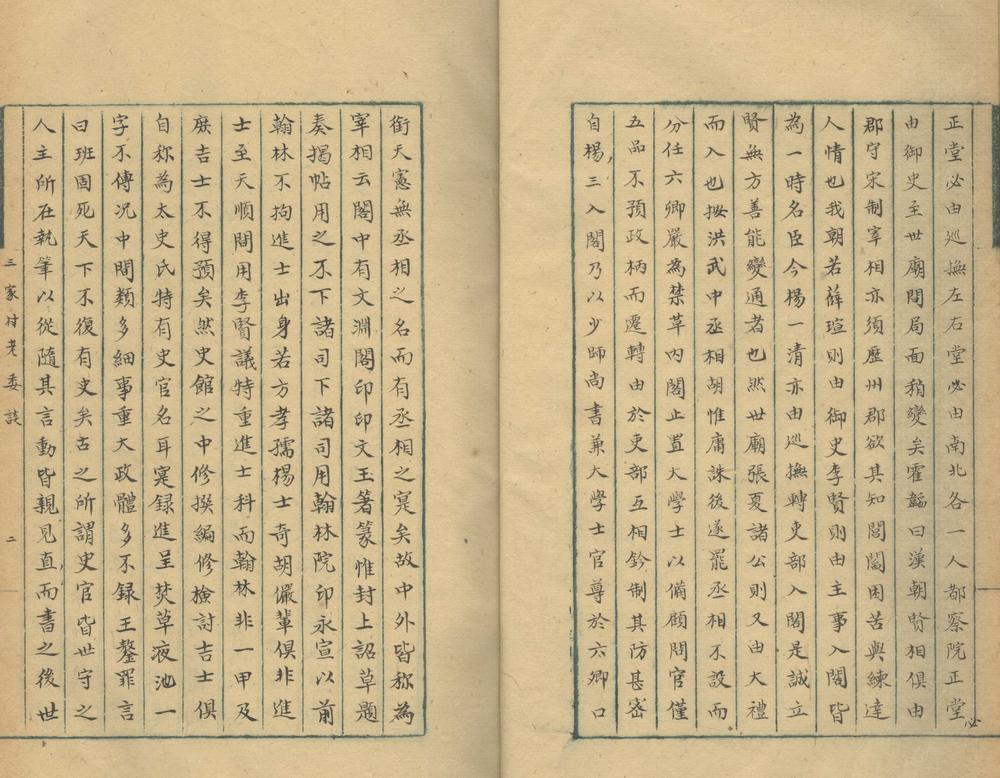 正堂必由廵撫左右堂必由南北各一人都察院正堂必
由御史至世廟間局面稍變矣霍韜曰漢朝賢相俱由
郡守宋制宰相亦須歷州郡欲其知閭閻困苦與練達
人情也我朝若薛瑄則由御史李賢則由主事入閣皆
為一時名臣今楊一清亦由廵撫轉吏部入閣是誠立
賢無方善能變通者也然世廟張夏諸公則又由大禮
而入也按洪武中丞相胡惟庸誅後遂罷丞相不設而
分任六卿嚴為禁革內閣止置大學士以備顧問官僅
五品不預政柄而遷轉由於吏部互相鈐制其防甚密
自楊三入閣乃以少師尚書兼大學士官尊於六卿口
銜天憲無丞相之名而有丞相之寔矣故中外皆称為
宰相云閣中有文淵閣印印文玉箸篆惟封上詔草題
奏揭帖用之不下諸司下諸司用翰林院印永宣以前
翰林不拘進士出身若方孝孺楊士奇胡儼輩俱非進
士至天順間用李賢議特重進士科而翰林非一甲及
庶吉士不得預矣然史館之中修撰編修檢討吉士俱
自称為太史氏特有史官名耳寔録進呈焚草液池一
字不傳況中間類多細事重大政體多不録王鏊罪言
曰班固死天下不復有史矣古之所謂史官皆世守之
人主所在執筆以從隨其言動皆親見直而書之後世
三家村老委談
二